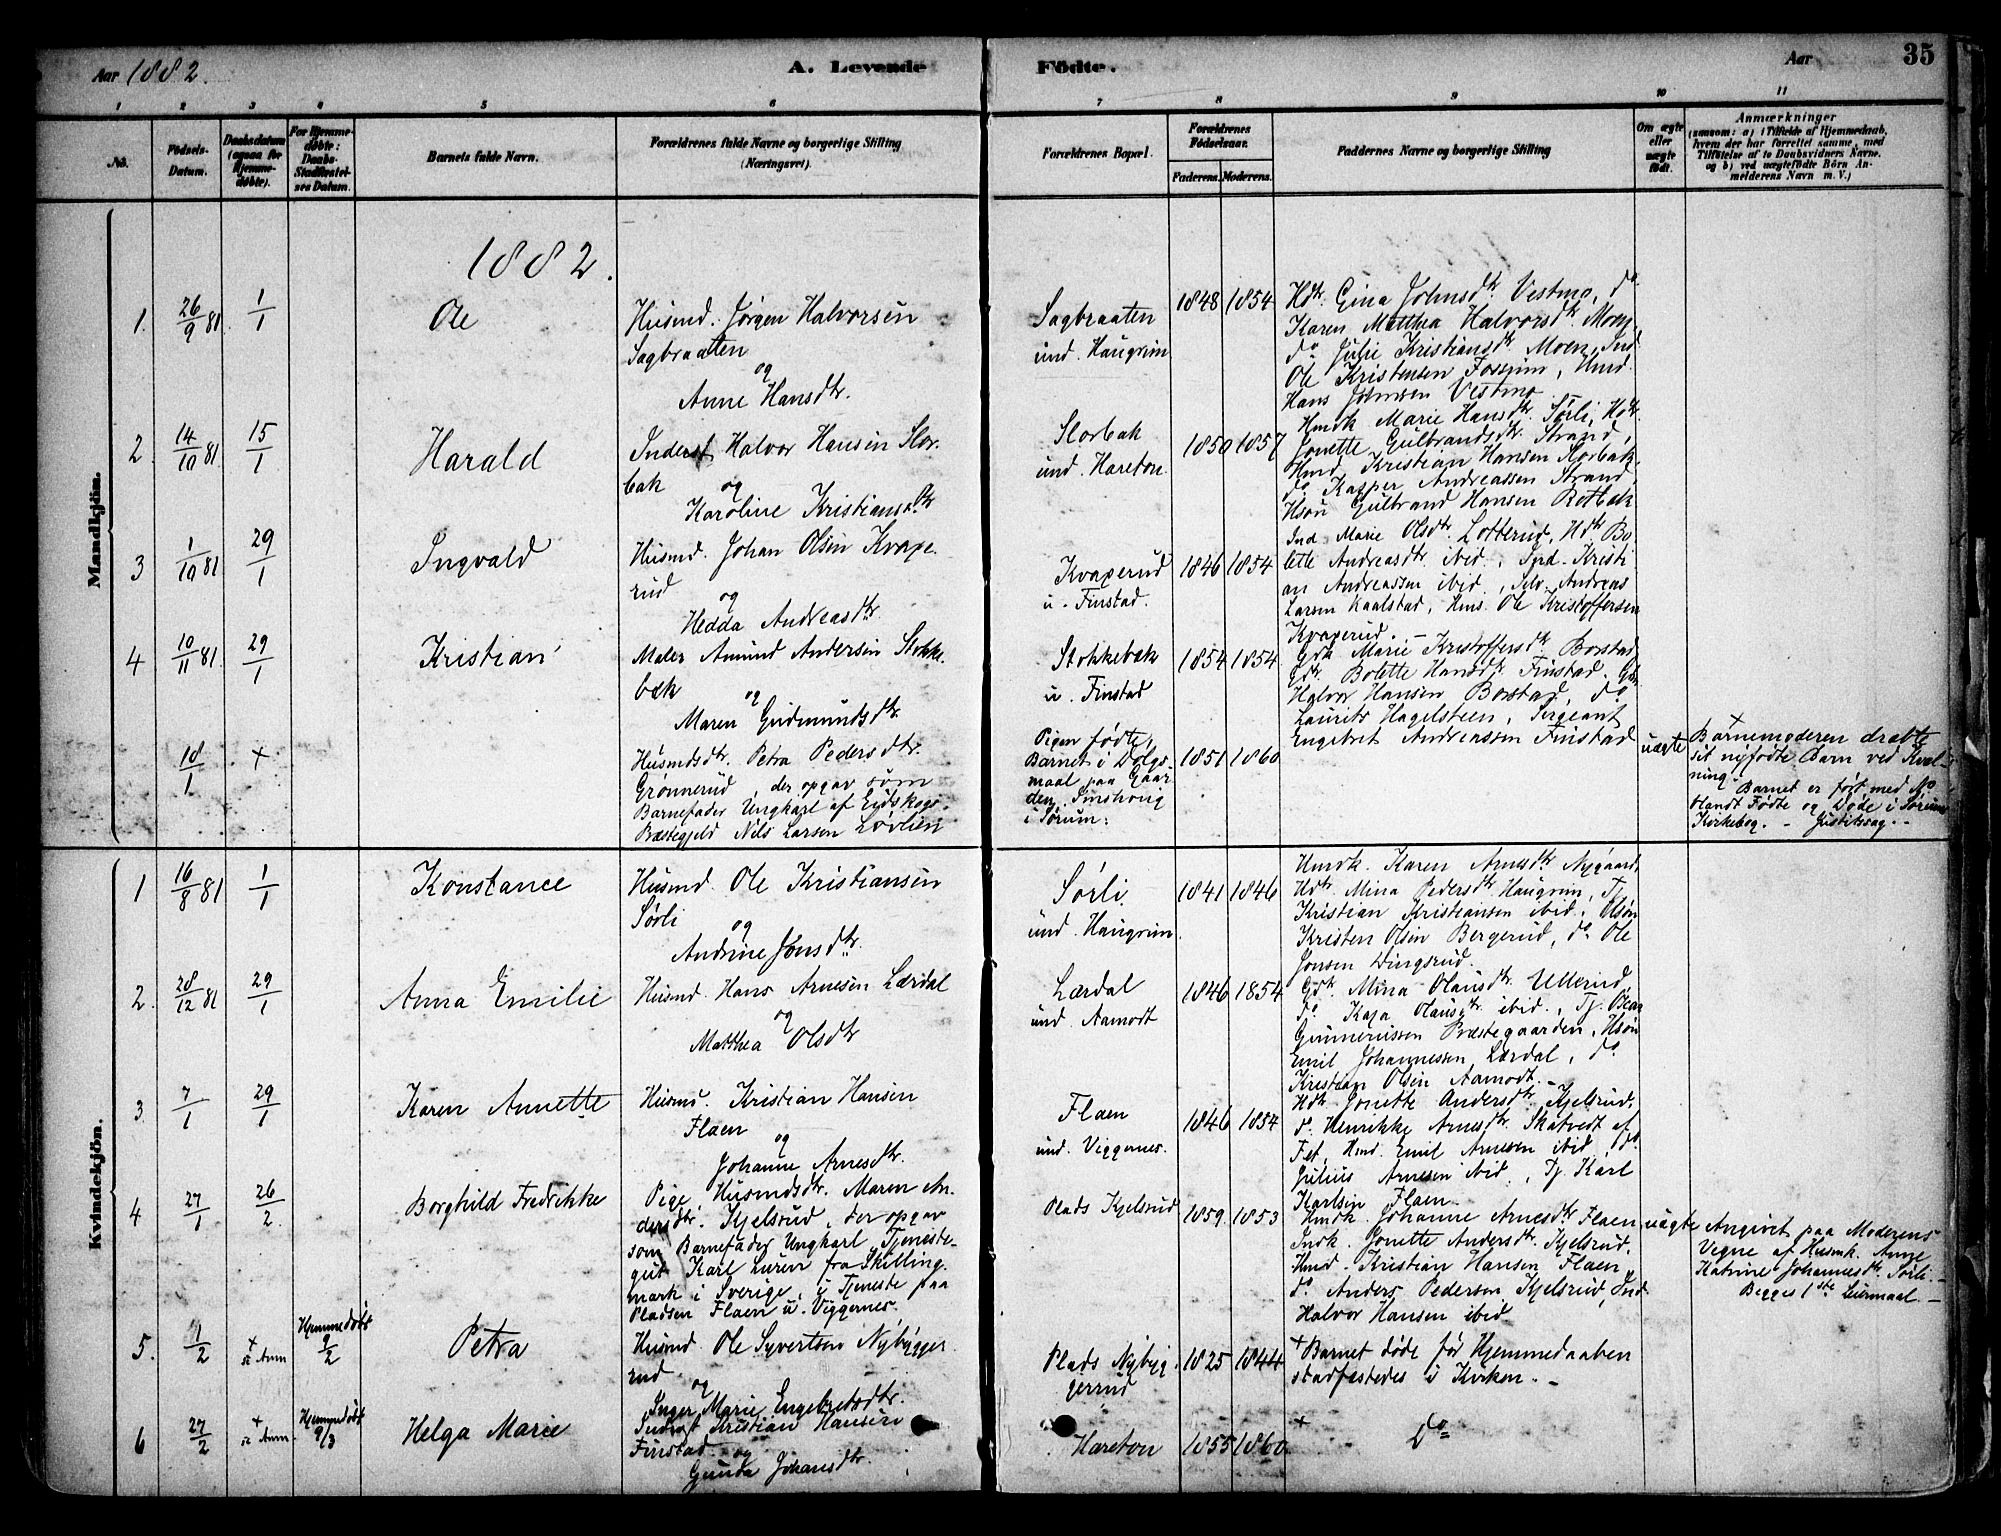 Aar 1882.
A. Levende
Fødte.
Aar
35
1 2 3 4 5 6 7 8 9 10 11
No.
Fødsels-
Datum.
Daabsdatum
(ogsaa for
Hjemme-
døbte).
For Hjemme-
døbte:
Daabs-
Stadfæstel-
ses Datum.
Barnets fulde Navn.
Forældrenes fulde Navne og borgerlige Stilling
(Næringsvei).
Forældrenes Bopæl.
Forældrenes
Fødselsaar.
Faderens. Moderens.
Faddernes Navne og borgerlige Stilling
Om ægte
eller
uægte
født.
Anmærkninger
(saasom: a) i Tilfælde af Hjemmedaab,
hvem der har forrettet samme, med
Tilføielse af to Daabsvidners Navne,
og b) ved uægtefødte Børn An-
melderens Navn m. V.)
Mandkjön.
1882.
1. 26/9 81 1/1
Ole
Husmd. Jørgen Halvorsen
Sagbraaten
og
Anne Hansdtr.
Sagbraaten
und. Haugrim
1848 1854
Hdtr. Gina Johnsdtr. Vestmo, do
Karen Matthea Halvorsdtr. Moen,
do Julie Kristiansdtr. Moen, Ind.
Ole Kristensen Fossum, Hmd.
Hans Johnsen Vestmo
2. 14/10 81 15/1
Harald
Inderst Halvor Hansen Slor-
bak
og
Karoline Kristiansdtr
Slorbak
und. Hareton
1850 1857
Hmdk Marie Hansdtr. Sørli, Hdtr.
Jonette Gulbrandsdtr. Strand,
Hmd. Kristian Hansen Slorbak,
do Kasper Andreassen Strand,
Hsøn Gulbrand Hansen Rotbæk
3 1/10 81 29/1
Ingvald
Husmd. Johan Olsen Kvape-
rud
og
Hedda Andreasdtr
Kvaperud
u. Finstad.
1846 1854
Ind. Marie Olsdtr. Lotterud, Hdtr. Bo-
lette Andreasdtr ibid., Ind. Kristi
an Andreassen ibid., Selv. Andreas
Larsen Kaalstad, Hms. Ole Kristoffersen
Kvaperud. –
4 10/11 81 29/1
Kristian
Maler Amund Andersen Stokke-
bæk
og
Maren Gudmundsdtr.
Stokkebæk
u. Finstad
1854 1854
Gdk Marie Kristoffersdtr. Borstad
Gdtr. Bolette Hansdtr Finstad. Gbr
Halvor Hansen Borstad, do
Laurits Hagelsteen, Sergeant
Engebret Andreassen Finstad
18/1 +
Husmdsdtr. Petra Pedersdtr.
Grønnerud, der opgav som
Barnefader Ungkarl af Eidskogs
Præstegjeld Nils Larsen Løvlien
Pigen fødte
Barnet i Dølgs-
maal paa Gaar-
den Sinshovig
i Sørum.
1851 1860
uægte
Barnemoderen dræbte
sit nyfødte Barn ved Kvæl-
ning
Barnet er ført med No
blandt Fødte og Døde i Sørum
Kirkebog. – Justitssag. –
Kvindekjön.
1 16/8 81 1/1
Konstance
Husmd. Ole Kristiansen
Sørli
og
Andrine Jonsdtr.
Sørli
und. Haugrim
1841 1846
Hmdk. Karen Arnesdtr Nygaard,
Hdtr. Mina Pedersdtr Haugrim, Tj.
Kristian Kristiansen ibid., Olsøn
Kristen Olsen Bergerud, do Ole
Jonsen Dingsrud.
2. 28/12 81 29/1
Anna Emilie
Husmd. Hans Arnesen Lærdal
og
Matthea Olsdtr
Lærdal
und. Aamodt
1846 1854
Gdk. Mina Olausdtr. Ullerud,
do Kaja Olausdtr ibid., Tj. Oscar
Gunnerussen Præstegaarden, Hsøn
Emil Johannessen Lærdal, do
Kristian Olsen Aamodt.
3 7/1 29/1
Karen Annette
Husmd. Kristian Hansen
Flaen
og
Johanne Arnesdtr.
Flaen
und. Viggernes.
1846 1854
Hdk. Jonette Andersdtr. Kjelsrud,
do Henrikke Arnesdtr. Skatvedt af
Fet, Hmd. Emil Arnesen ibid, do
Julius Arnesen ibid., Tj. Karl
Karlsen Flaen
4 27/1 26/2.
Borghild Fredrikke
Pige Husmdsdtr. Maren An-
dersdtr. Kjelsrud, der opgav
som Barnefader Ungkarl Tjeneste-
gut Karl Luren fra Skilling-
mark i Sverige, i Tjeneste paa
Pladsen Flaen u. Viggernes.
Plads Kjelsrud
1859 1853
Hmdk. Johanne Arnesdtr Flaen,
Indk. Jonette Andersdtr. Kjelsrud.
Hmd. Kristian Hansen Flaen,
do Anders Pedersen Kjelsrud, Ind.
Halvor Hansen ibid.
uægte
Angivet paa Moderens
Vegne af Husmk. Anne
Katrine Johannesdtr. Sørli. –
Begges 1ste Leiermaal. –
5. 1/2
+
se Anm
Hjemmedøbt
9/2
Petra
Husmd. Ole Syvertsen Nybygger-
rud
og
Inger Marie Engebretsdtr.
Plads Nybyg-
gerrud
1825 1844
+ Barnet døde før Hjemmedaaben
stadfæstedes i Kirken. –
6 27/2
+
se Anm.
Hjemmedøbt
9/3
Helga Marie
Inderst Kristian Hansen
Finstad
og
Gunda Johansdtr.
Hareton
1855 1860
+ Do